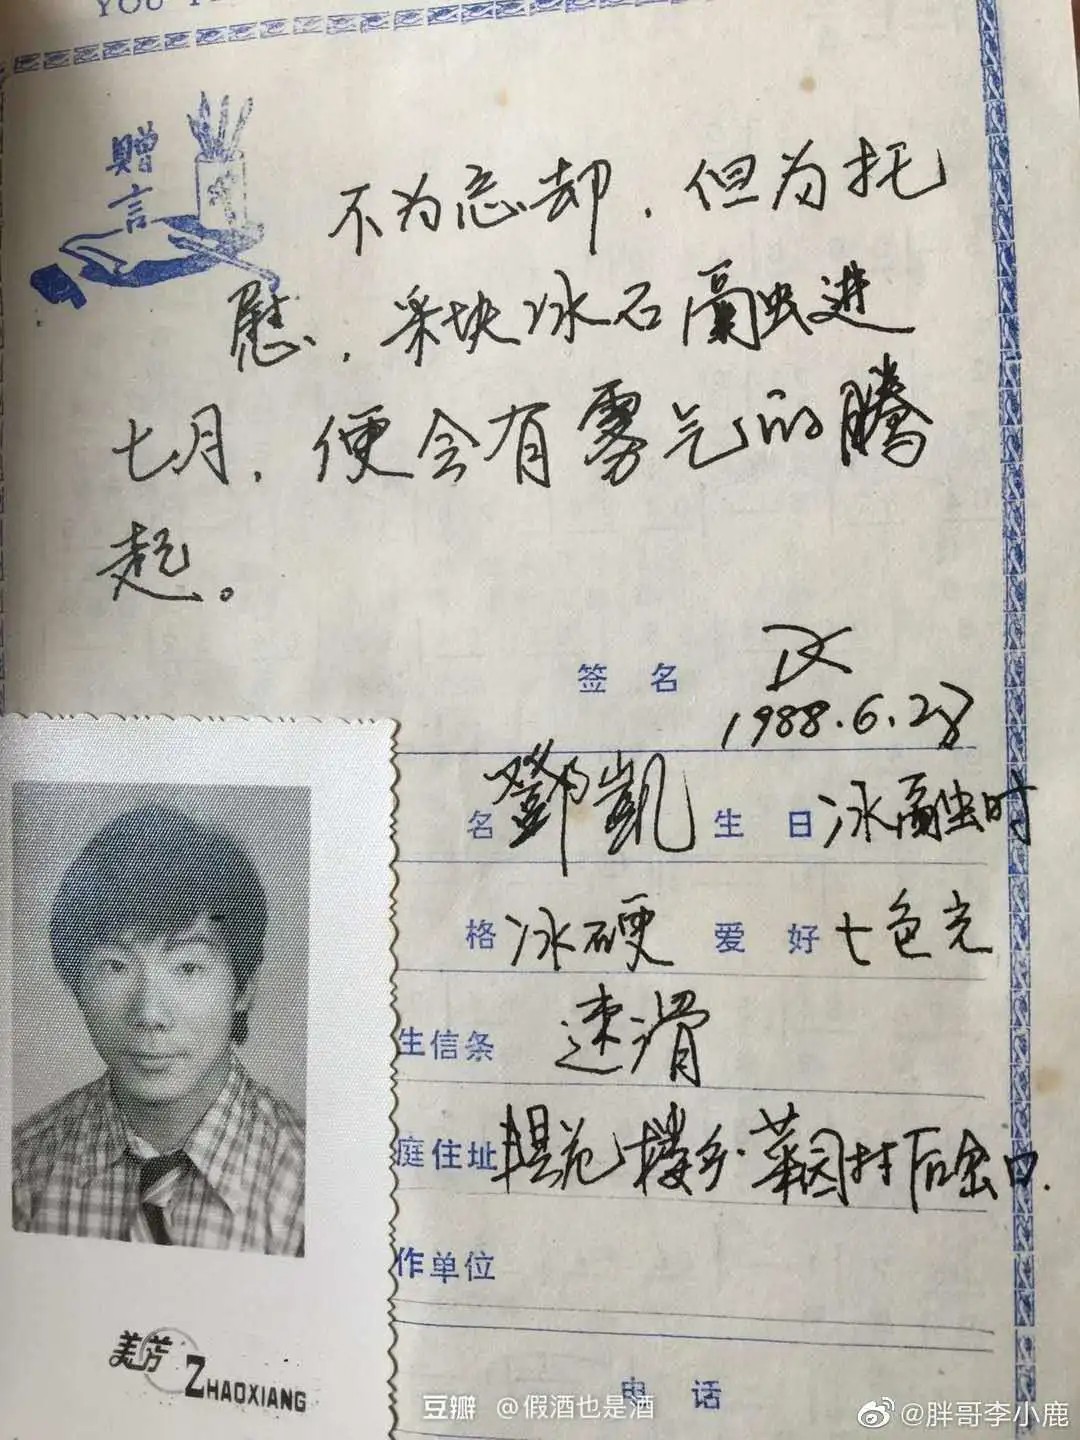 YOU
赠言
不为忘却，但为托
慰，采块冰石融进
七月，便会有雾气的腾
起。
签 名
1988.6.28
名 鄧凱 生 日 冰融时
格 冰硬 爱 好 七色光
生信条 速滑
庭住址 楼乡·草园村后金口.
作单位
电 话
美芳 ZHAOXIANG
豆瓣 @假酒也是酒
@胖哥李小鹿